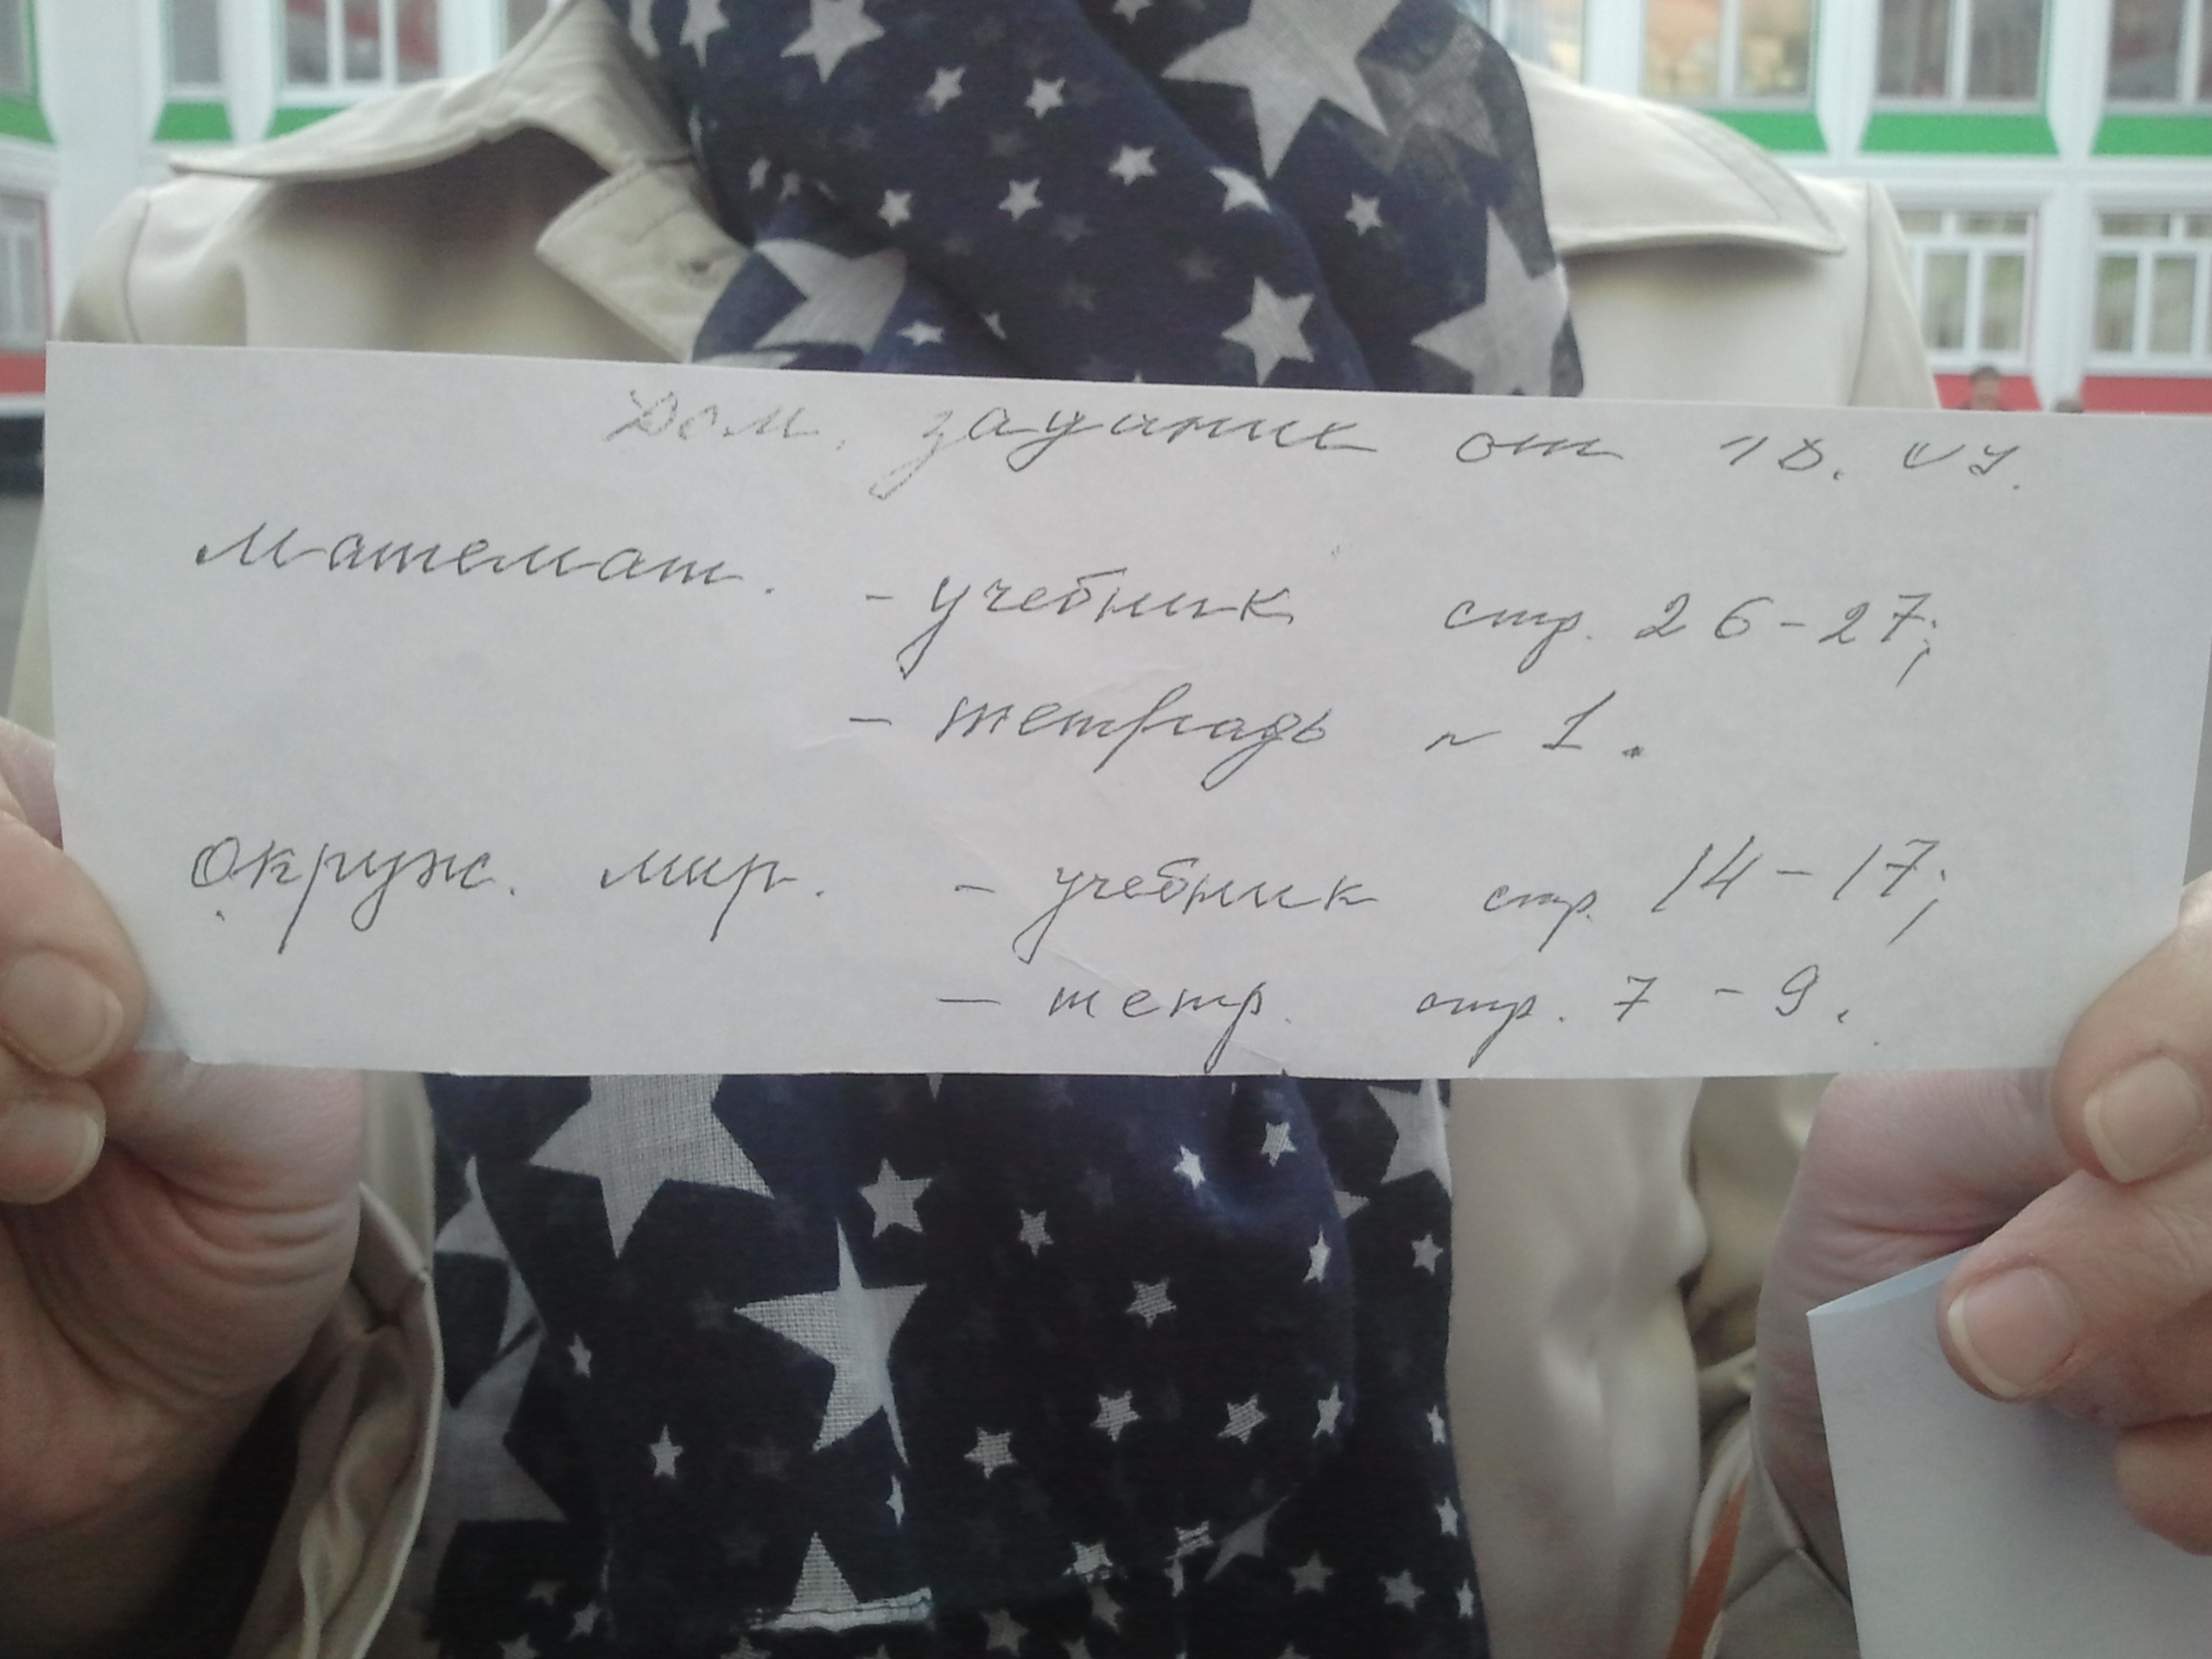 Дом. задание от 18. 09.
Математ. - учебник стр. 26-27;
- тетрадь № 1.
Окруж. мир. - учебник стр. 14-17;
- тетр. стр. 7-9.